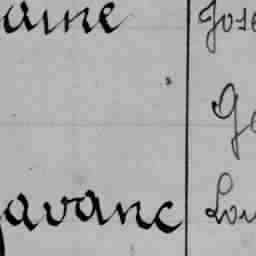 aine Jose
Ge
avanc Lou